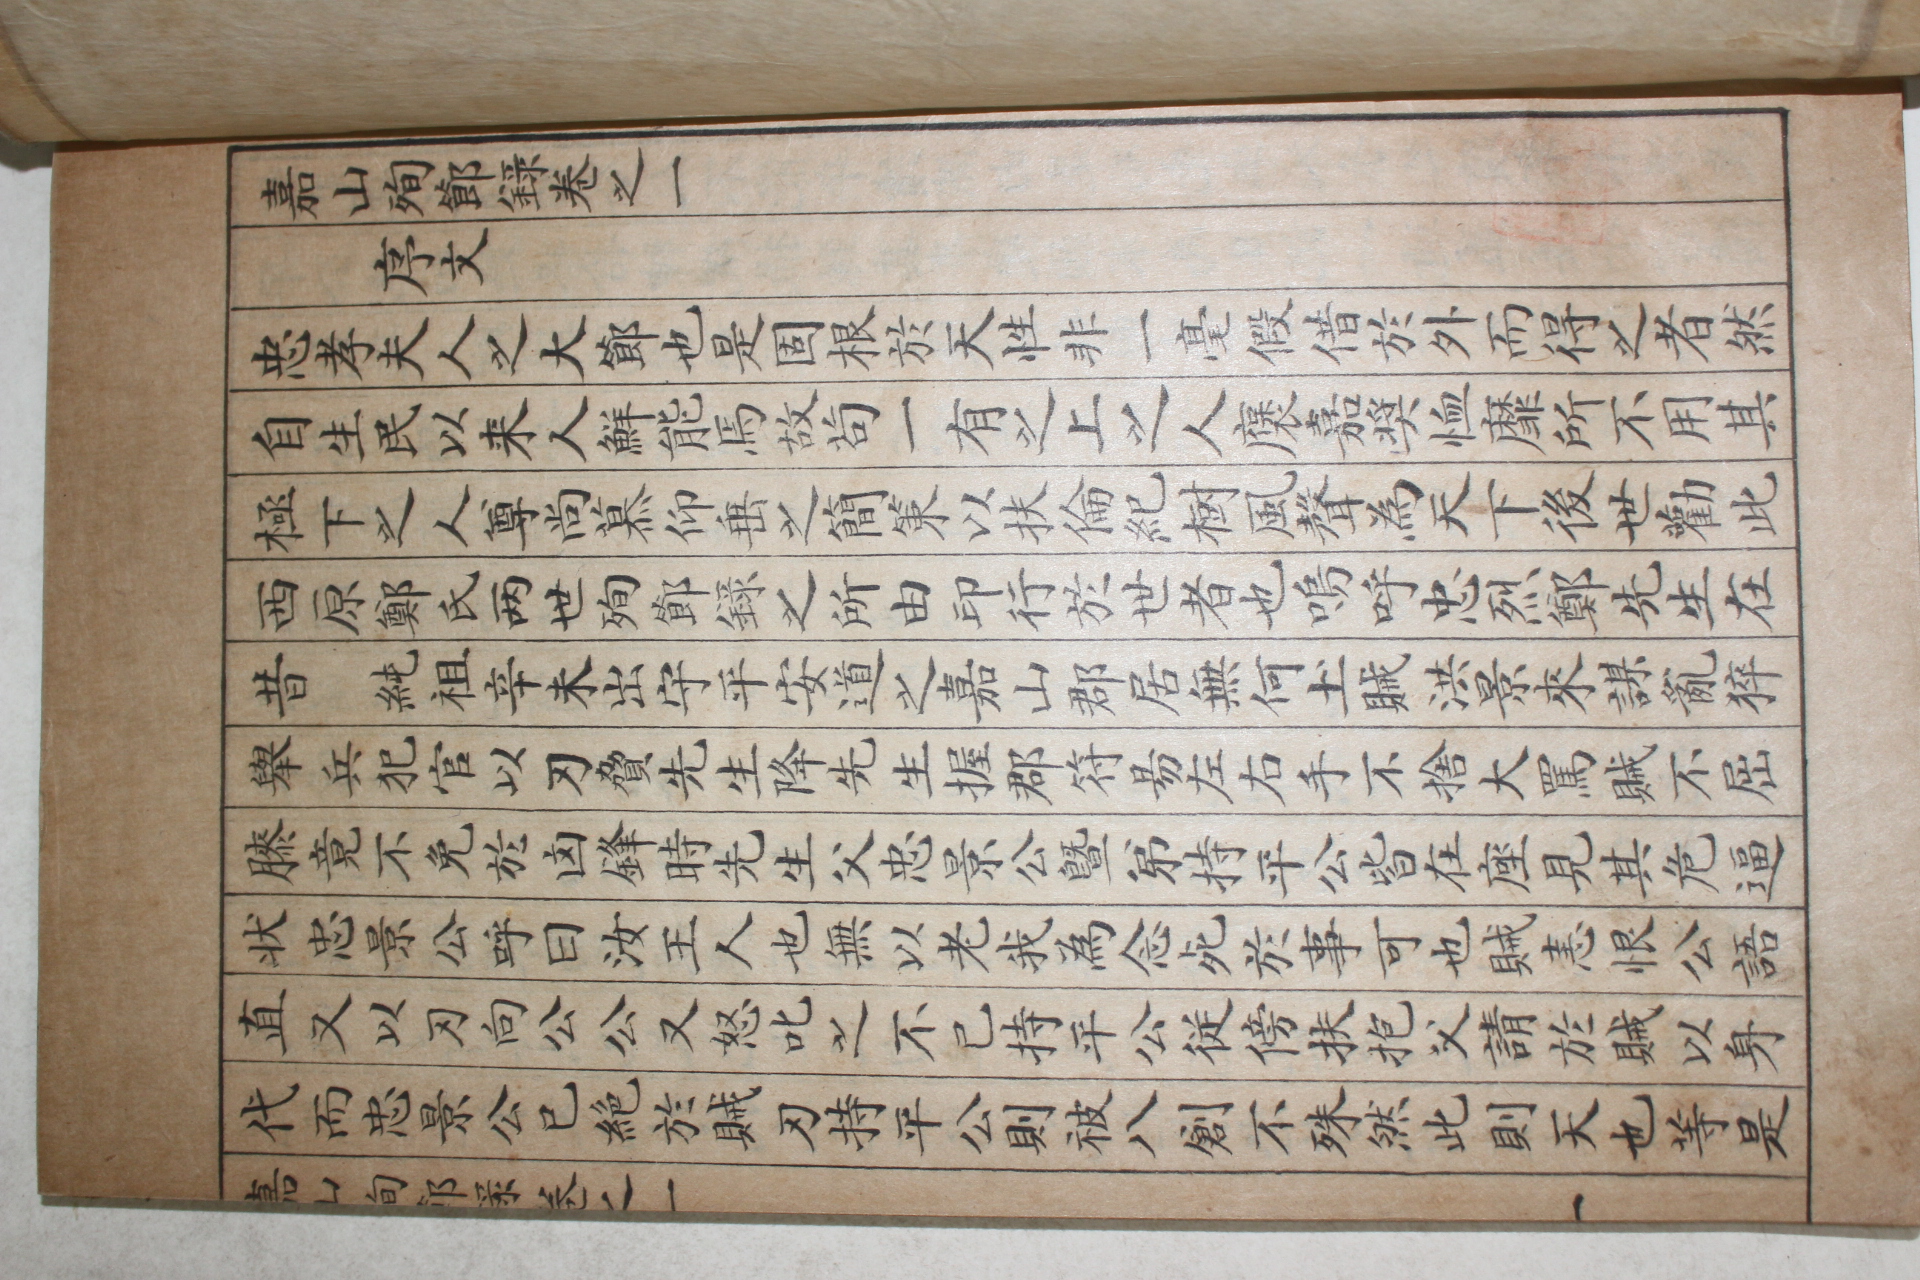 嘉山殉節録巻之一
序文
忠孝夫人之大節也是固根於天性非一毫假借於外而得之者然
自生民以来人鮮能焉故苟一有之上之人褒嘉奬恤靡所不用其
極下之人尊尚慕仰垂之簡策以扶倫紀樹風聲為天下後世勸此
西原鄭氏两世殉節録之所由印行於世者也嗚呼忠烈鄭先生在
昔　純祖辛未出守平安道之嘉山郡居無何土賊洪景來謀亂猝
舉兵犯官以刃脅先生降先生握郡符易左右手不捨大罵賊不屈
膝竟不免於凶鋒時先生父忠景公曁弟持平公皆在座見其危逼
状忠景公呼曰汝王人也無以老我為念死於事可也賊恚恨公語
直又以刃向公公又怒叱之不已持平公従傍扶抱父請於賊以身
代而忠景公已絶於賊刃持平公則被八創不殊然此則天也等是
嘉山殉節録巻之一
一